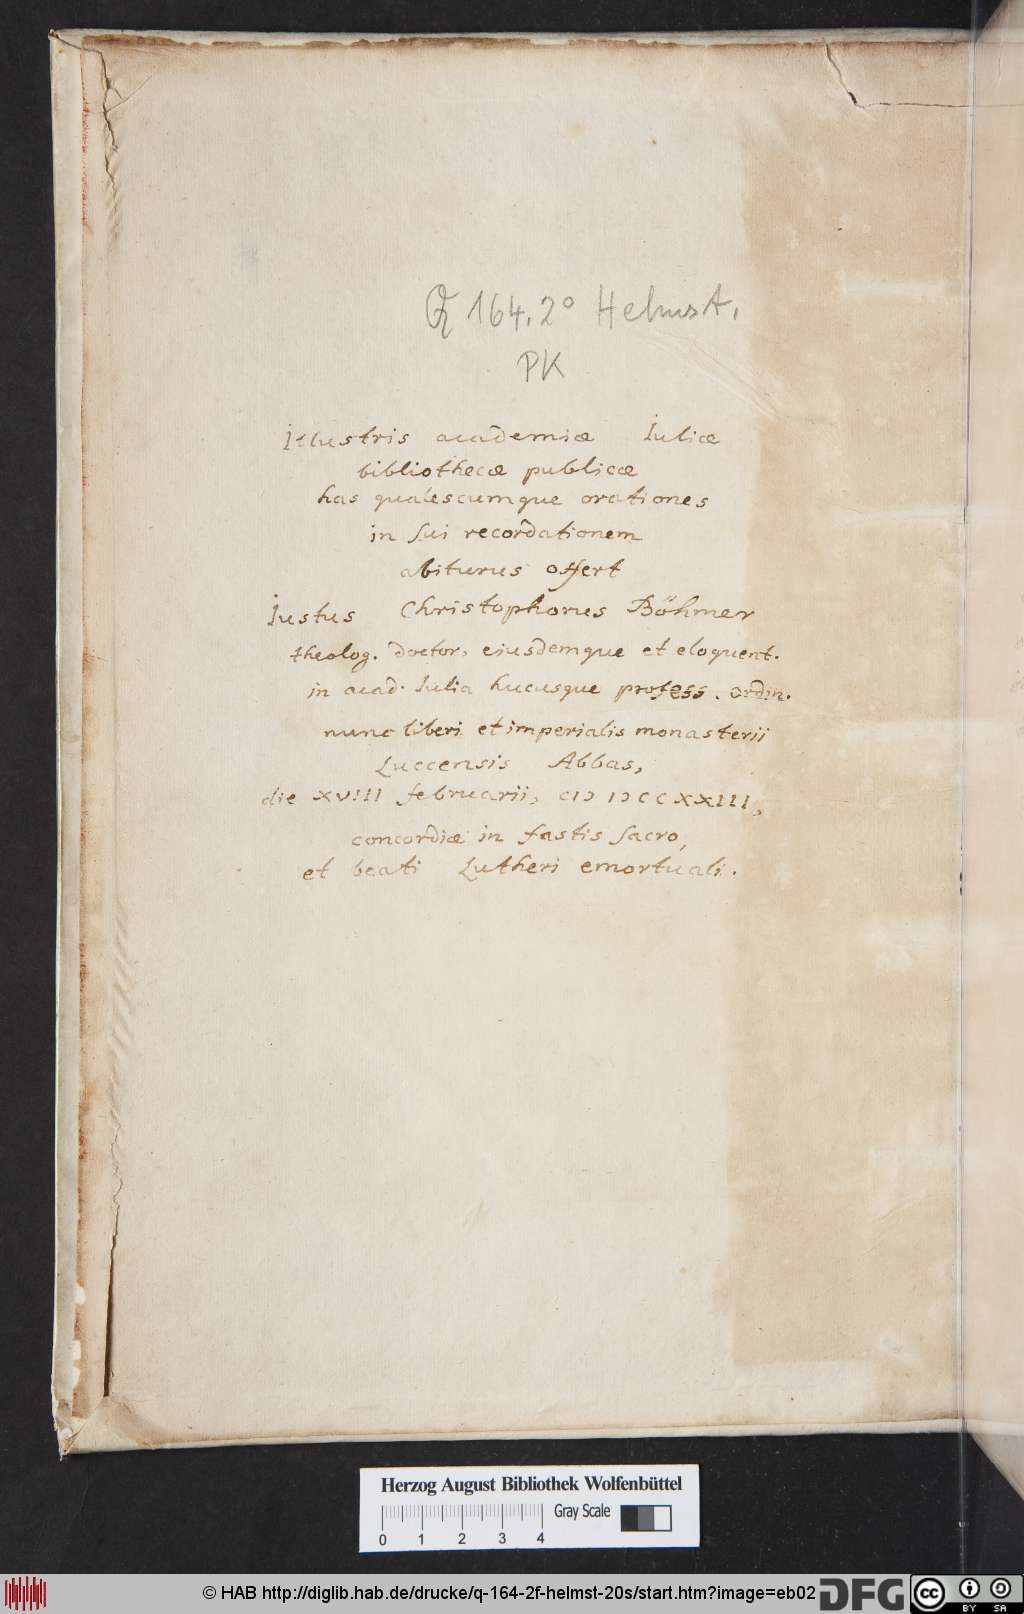 Q 164.2° Helmst.
PK
Illustris academiæ Iuliæ
bibliothecæ publicæ
has qualescumque orationes
in sui recordationem
abiturus offert
Iustus Christophorus Böhmer
theolog. doctor, eiusdemque et eloquent.
in acad. Iulia hucusque profess. ordin.
nunc liberi et imperialis monasterii
Luccensis Abbas,
die XVIII februarii, CIↃ IↃCCXXIII,
concordiæ in fastis sacro,
et beati Lutheri emortuali.
Herzog August Bibliothek Wolfenbüttel
Gray Scale
0 1 2 3 4
© HAB http://diglib.hab.de/drucke/q-164-2f-helmst-20s/start.htm?image=eb02
DFG
cc BY SA